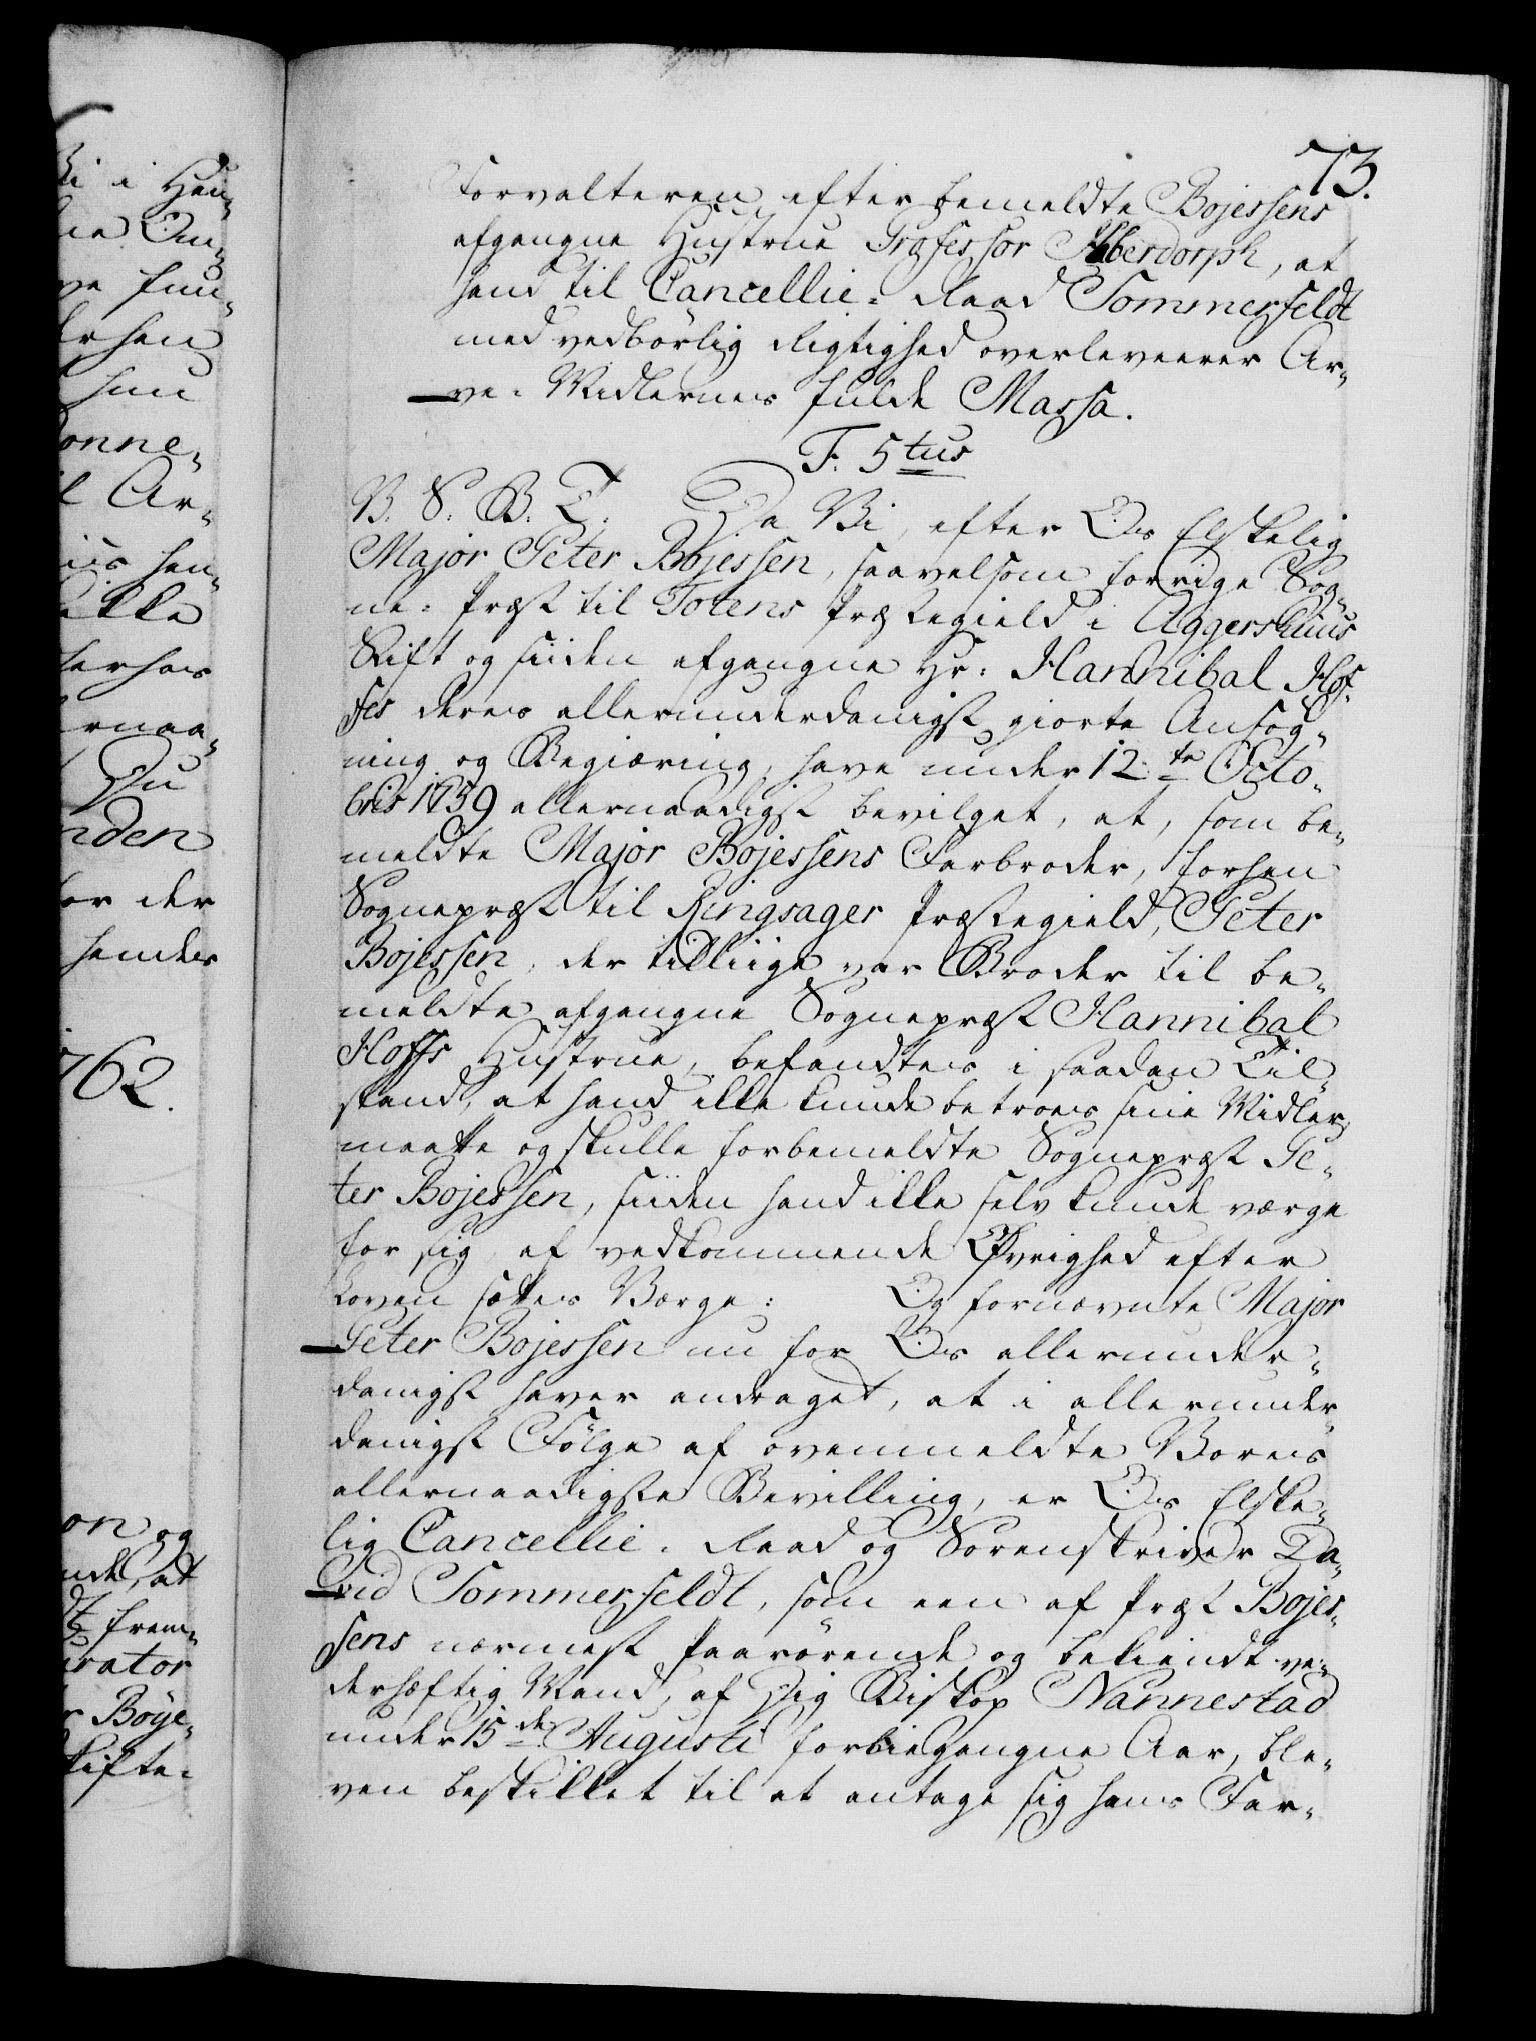 73.
Forvalteren efter bemeldte Bojessens
afgangne Hustrue Professor Abberdorph, at
hand til Cancellie-Raad Sommerfeldt
med vedbörlig Rigtighed overleveerer Ar-
ve-Midlernes fulde Massa.
F. 5tus
V. S. B. T. Da Vi, efter Os Elskelig
Major Peter Bojessen, saavelsom forrige Sog-
ne-Præst til Totens Præstegield i Aggershuus
Stift og siiden afgangne Hr. Hannibal Hof-
fes deres allerunderdanigst giorte Ansög-
ning og Begiæring, have under 12te Octo-
bris 1759 allernaadigst bevilget, at, som be-
meldte Major Bojessens Farbroder, forhen
Sognepræst til Ringsager Præstegield, Peter
Bojessen, der tilliige var Broder til be-
meldte afgangne Sognepræst Hannibal
Hoffs Hustrue, befandtes i saadan Til-
stand, at hand ikke kunde betroes sine Midler,
maatte og skulle forbemeldte Sognepræst Pe-
ter Bojessen, siiden hand ikke selv kunde værge
for sig, af vedkommende Øvrighed efter
Loven sættes Værge: Og fornævnte Major
Peter Bojessen nu for Os allerunder-
danigst haver andraget, at i allerunder-
danigst Fölge af ovenmeldte Vores
allernaadigste Bevilling, er Os Elske-
lig Cancellie-Raad og Sorenskriver Da-
vid Sommerfeldt, som een af Præst Bojes-
sens nærmest Paarörende og bekiendt ve-
derhæftig Mand, af Dig Biskop Nannestad
under 15de Augusti forbiegangne Aar, ble-
ven beskikket til at antage sig hans Far-